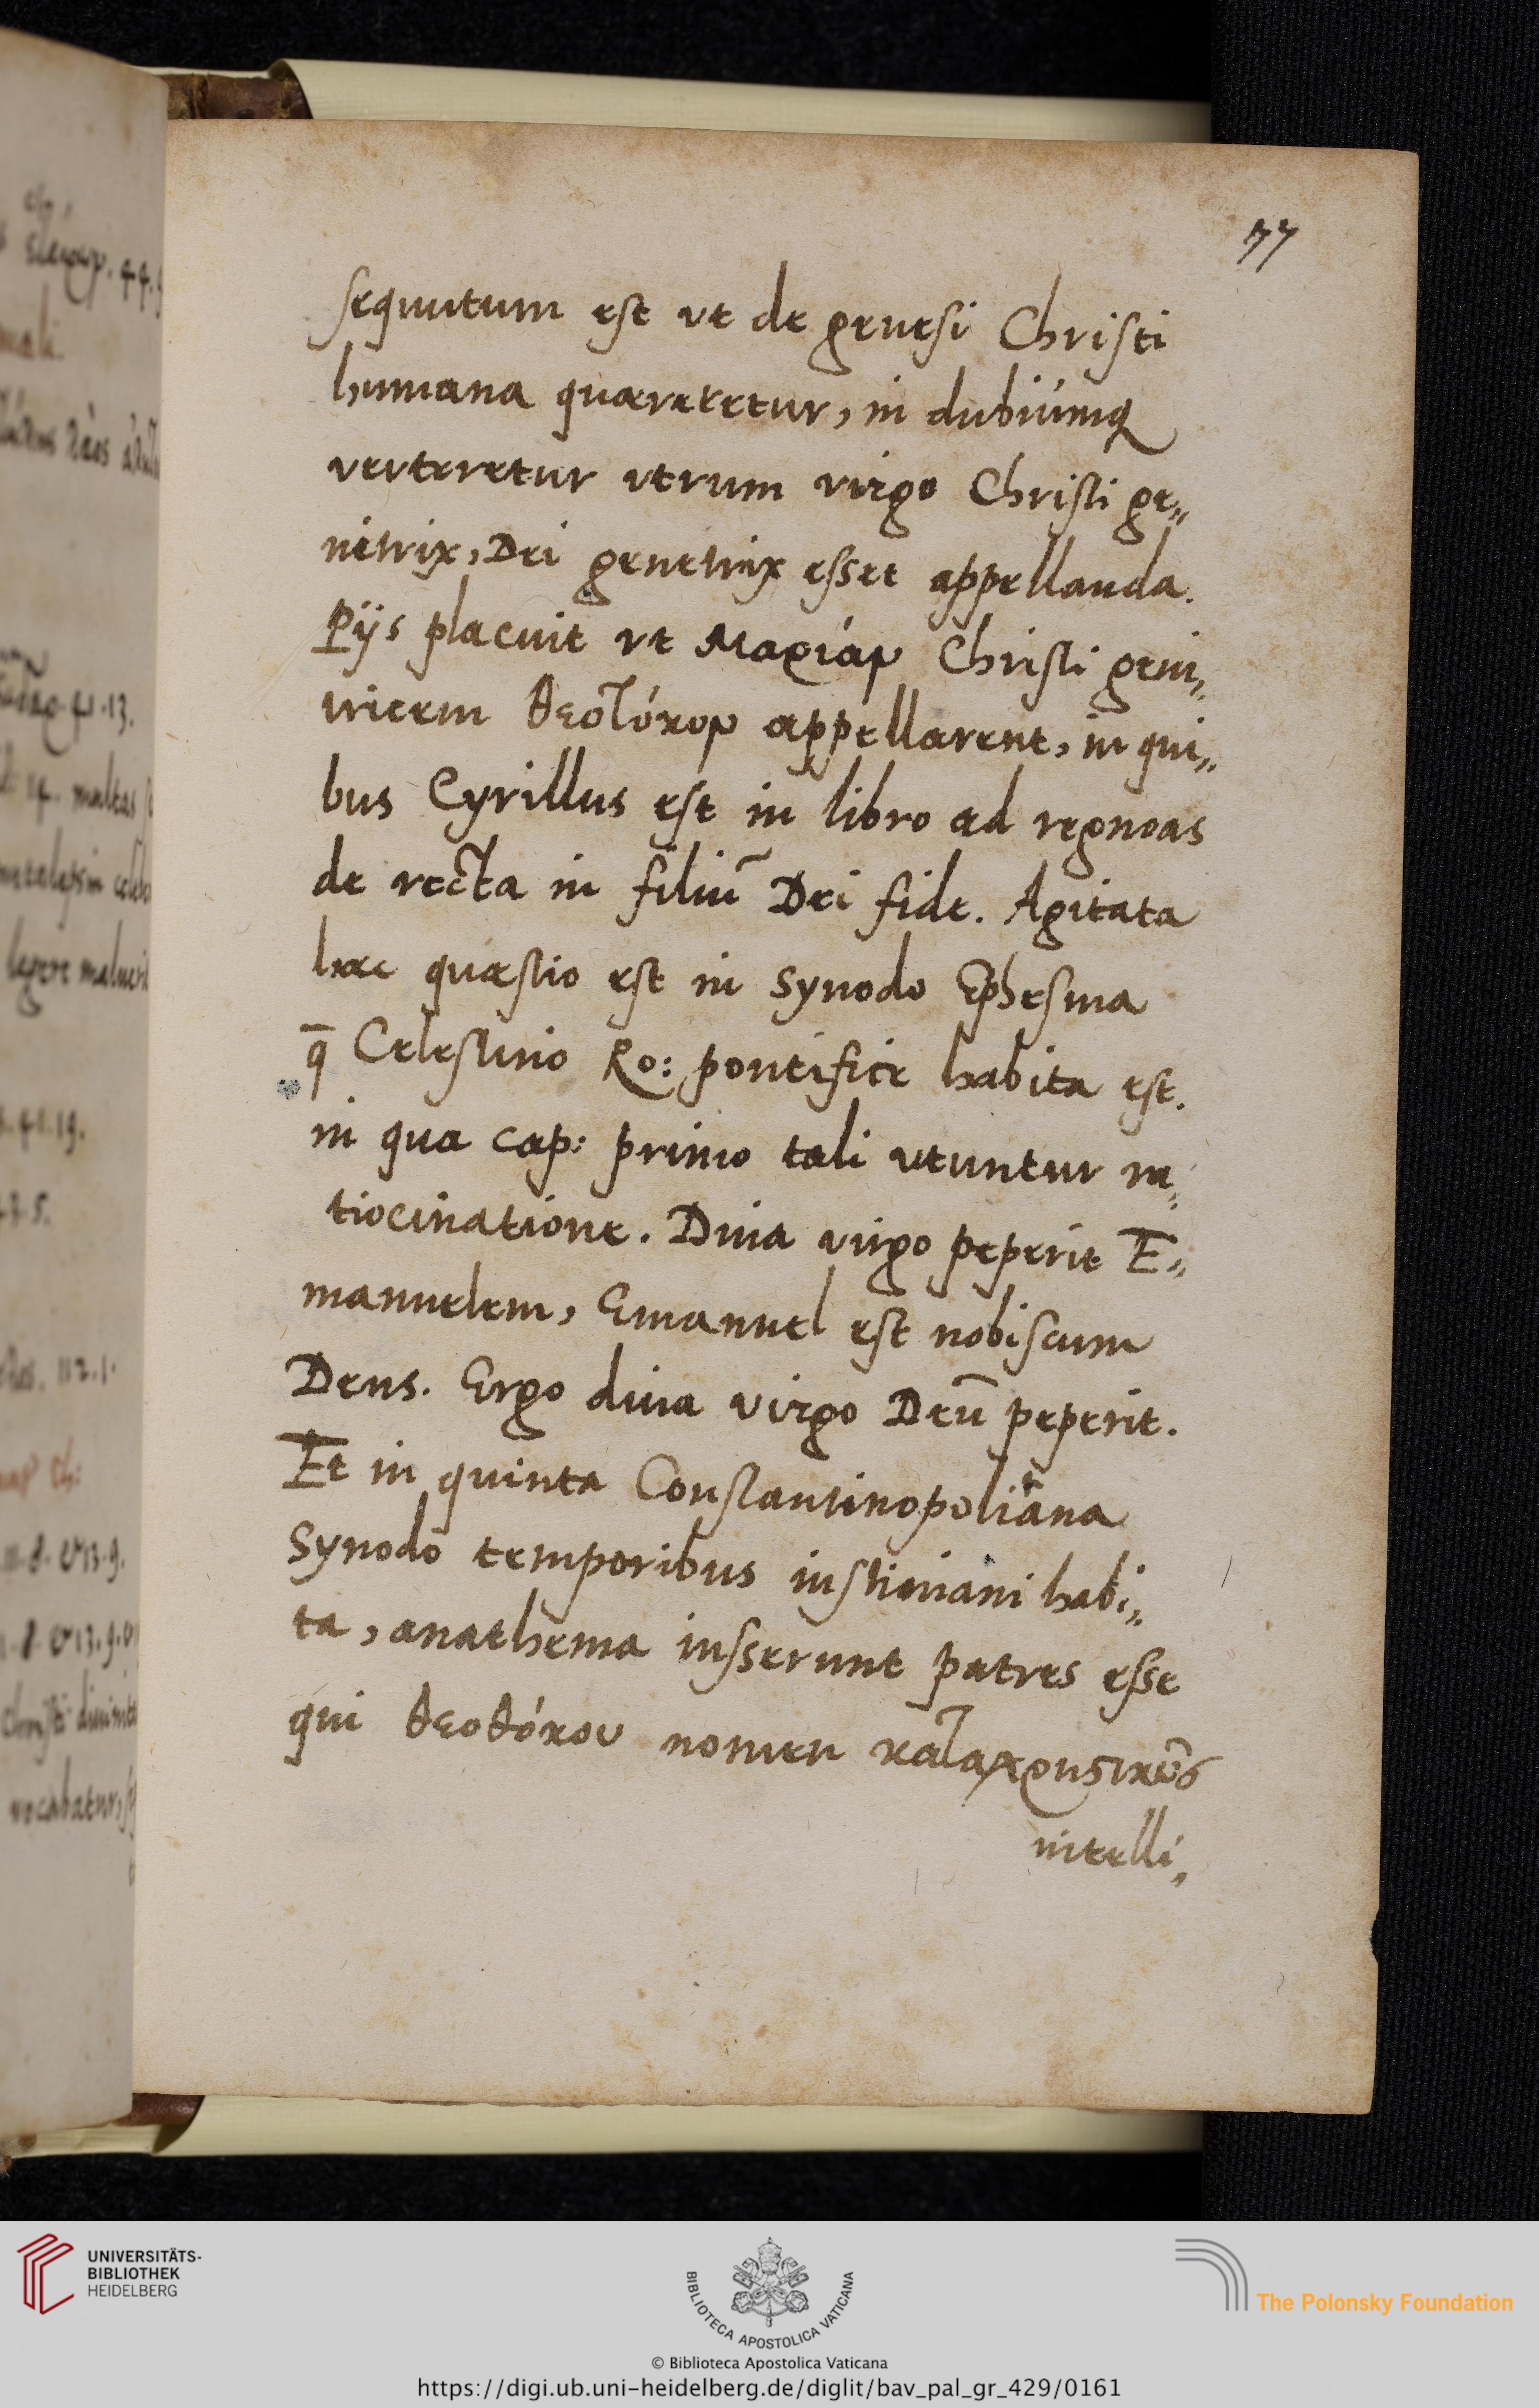 77
sequutum est ut de genesi Christi
humana quaereretur, in dubiúmq
verteretur utrum virgo Christi ge„
nitrix, Dei genetrix esset appellanda.
Pijs placuit ut Μαρίαν Christi geni„
tricem θεοτόκον appellarent, in qui„
bus Cyrillus est in libro ad reginas
de recta in filiũ Dei fide. Agitata
haec quaestio est in synodo Ephesina
q̄ Celestino Ro: pontifice habita est.
in qua cap: primo tali utuntur ra„
tiocinatione. Diva virgo peperit E„
manuelem, Emanuel est nobiscum
Deus. Ergo diva virgo Deū peperit.
Et in quinta Constantinopolitana
Synodo temporibus iustiniani habi„
ta, anathema iusserunt patres esse
qui θεοτόκου nomen καταχρηστικῶς
intelli„
ge malueri
41.13.
maltas
41.19.
3.5.
112.1.
UNIVERSITÄTS-
BIBLIOTHEK
HEIDELBERG
BIBLIOTECA APOSTOLICA VATICANA
The Polonsky Foundation
© Biblioteca Apostolica Vaticana
https://digi.ub.uni-heidelberg.de/diglit/bav_pal_gr_429/0161